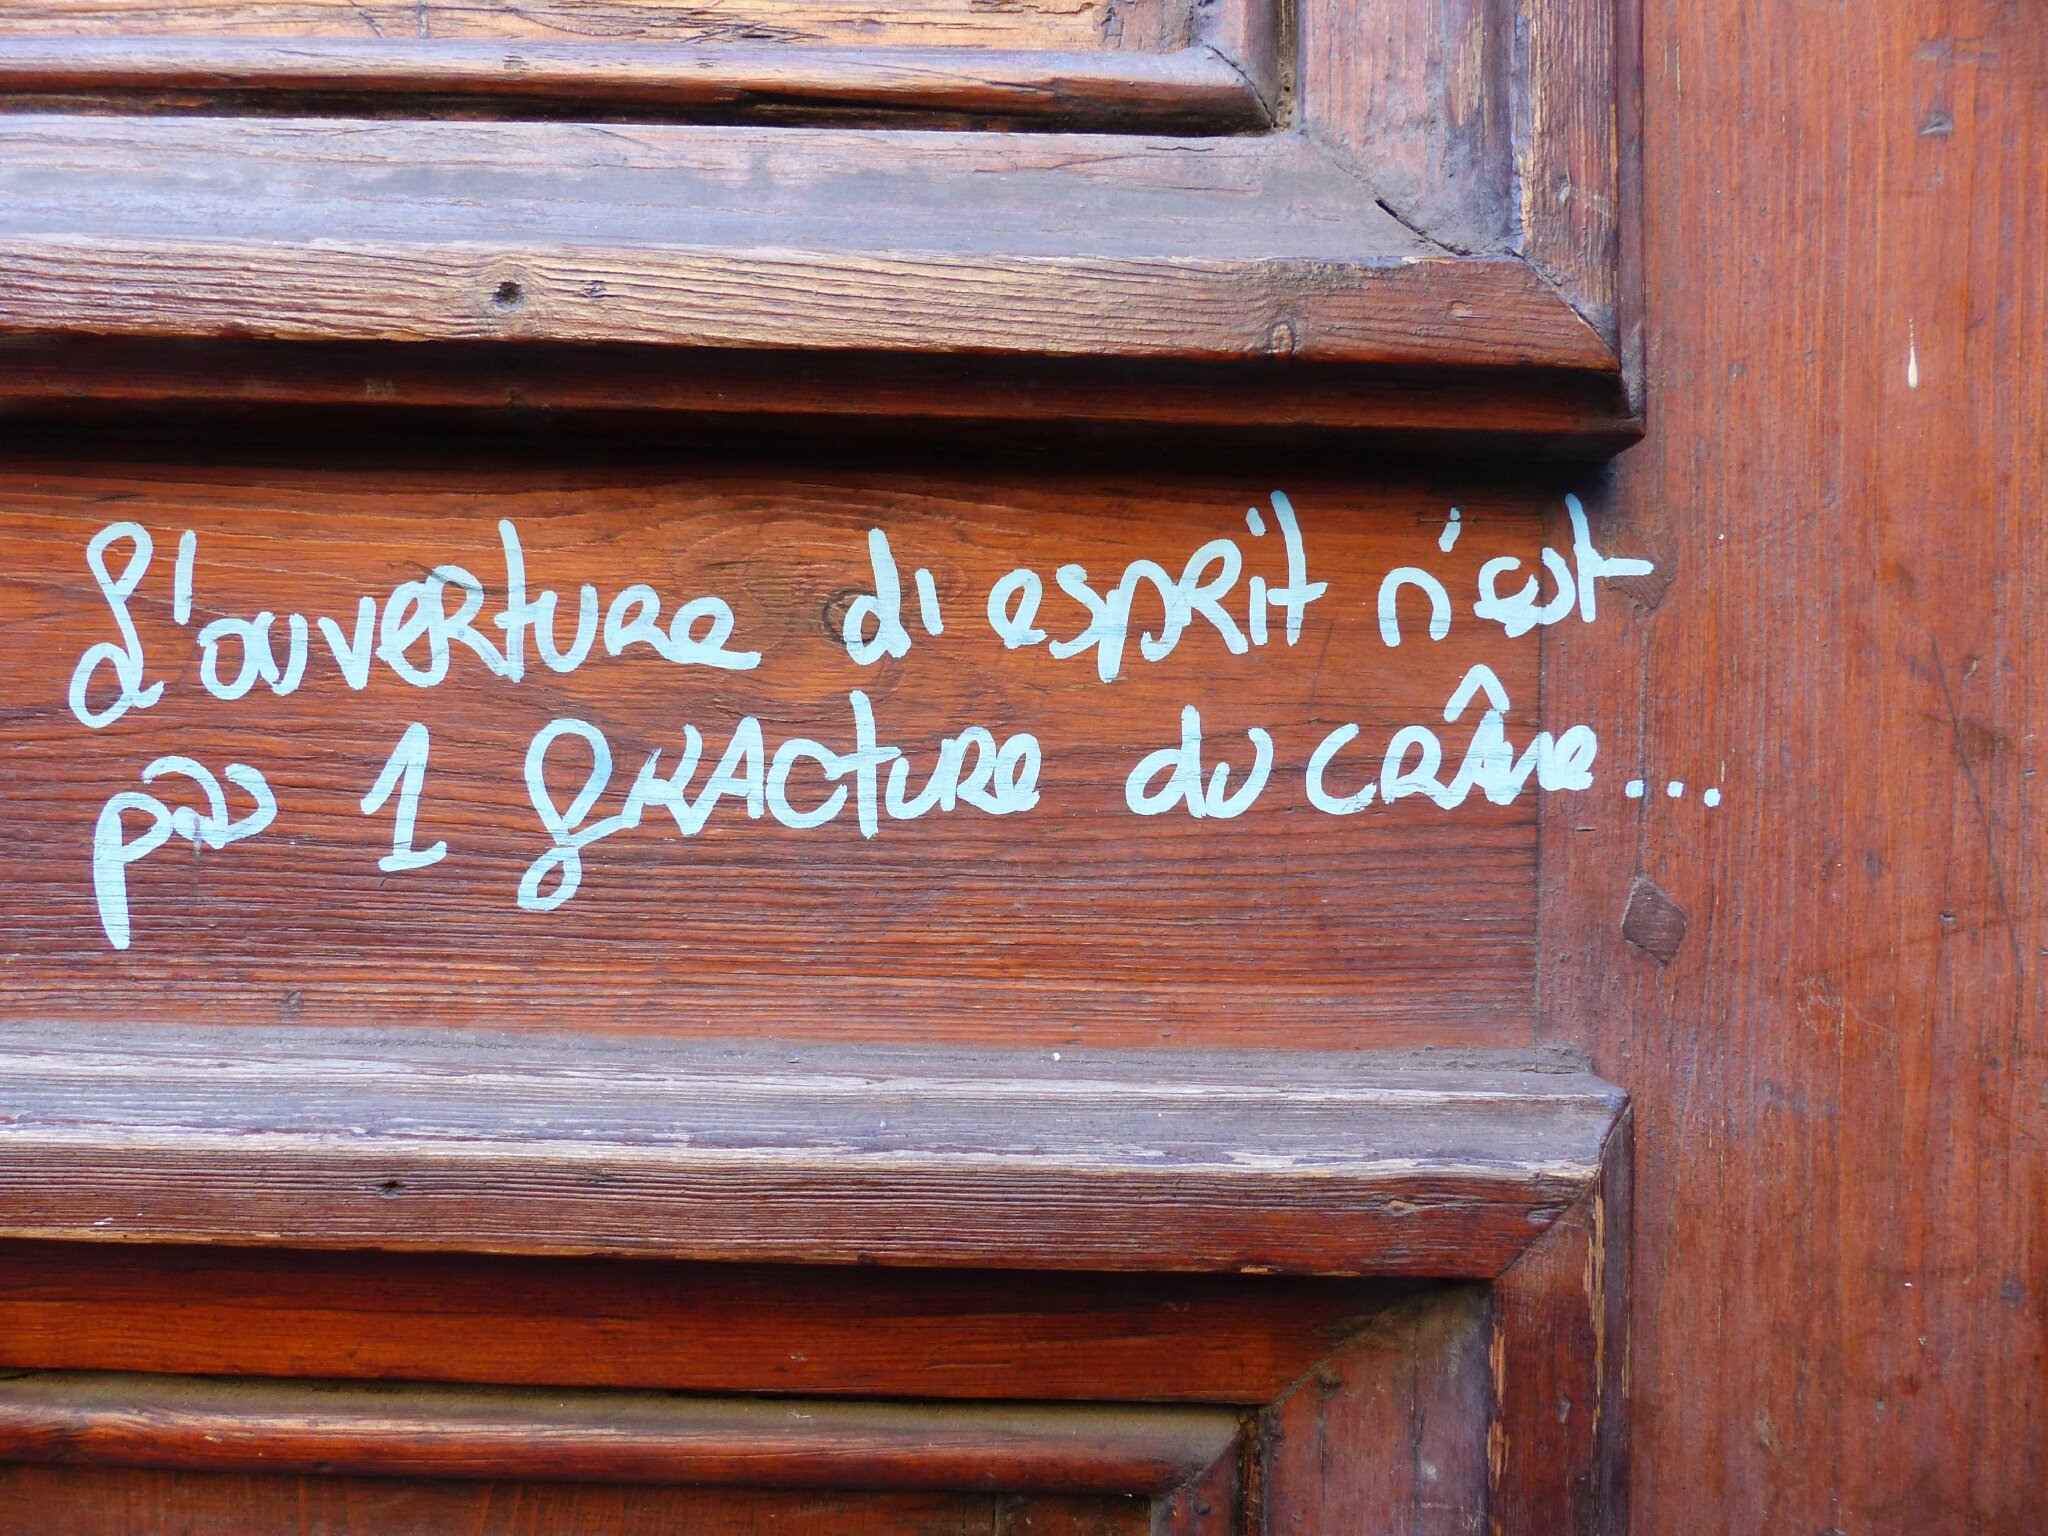 L'ouverture d'esprit n'est
pas 1 fracture du crâne...